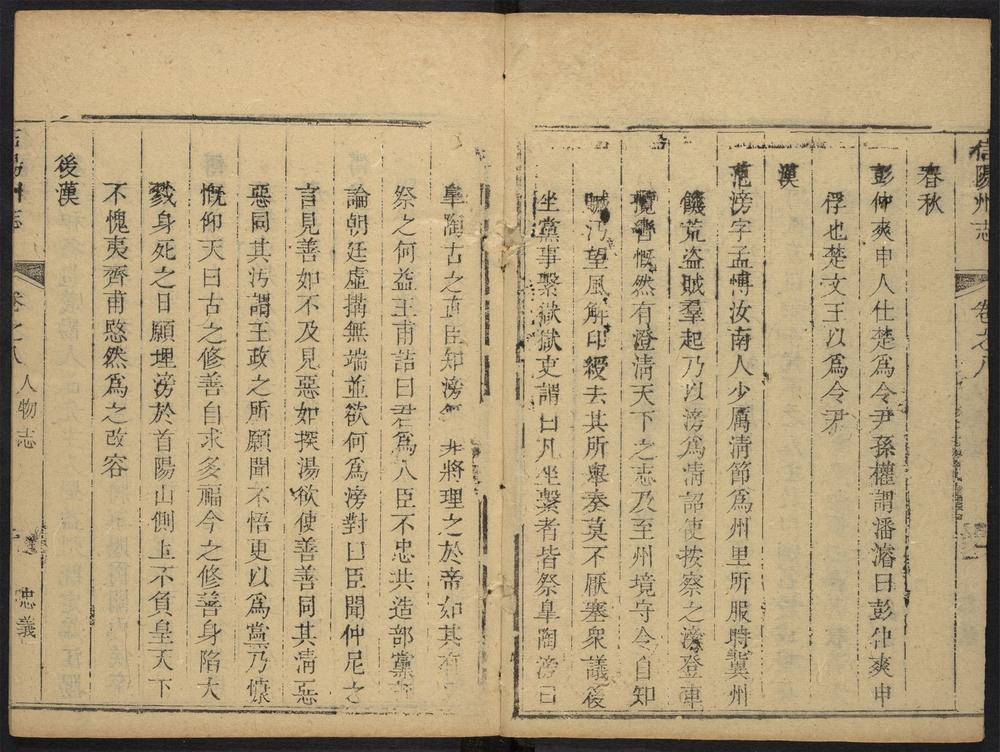 信陽州志 卷之八
春秋
彭仲爽申人仕楚爲令尹孫權謂潘濬曰彭仲爽申
俘也楚文王以爲令尹
漢
范滂字孟博汝南人少厲清節爲州里所服時冀州
饑荒盗賊羣起乃以滂爲清詔使按察之滂登車
攬轡慨然有澄清天下之志及至州境守令自知
贓汚望風解印綬去其所舉奏莫不厭塞衆議後
坐黨事繫獄獄吏謂曰凡坐繫者皆祭臯陶滂曰
臯陶古之直臣知滂 非將理之於帝如其有
祭之何益王甫詰曰君爲人臣不忠共造部黨
論朝廷虛搆無端並欲何爲滂對曰臣聞仲尼之
言見善如不及見惡如探湯欲使善善同其清惡
惡同其汚謂王政之所願聞不悟更以爲黨乃慷
慨仰天曰古之修善自求多福今之修善身陷大
戮身死之日願埋滂於首陽山側上不負皇天下
不愧夷齊甫愍然爲之改容
後漢
州志 卷之八 人物志 忠義